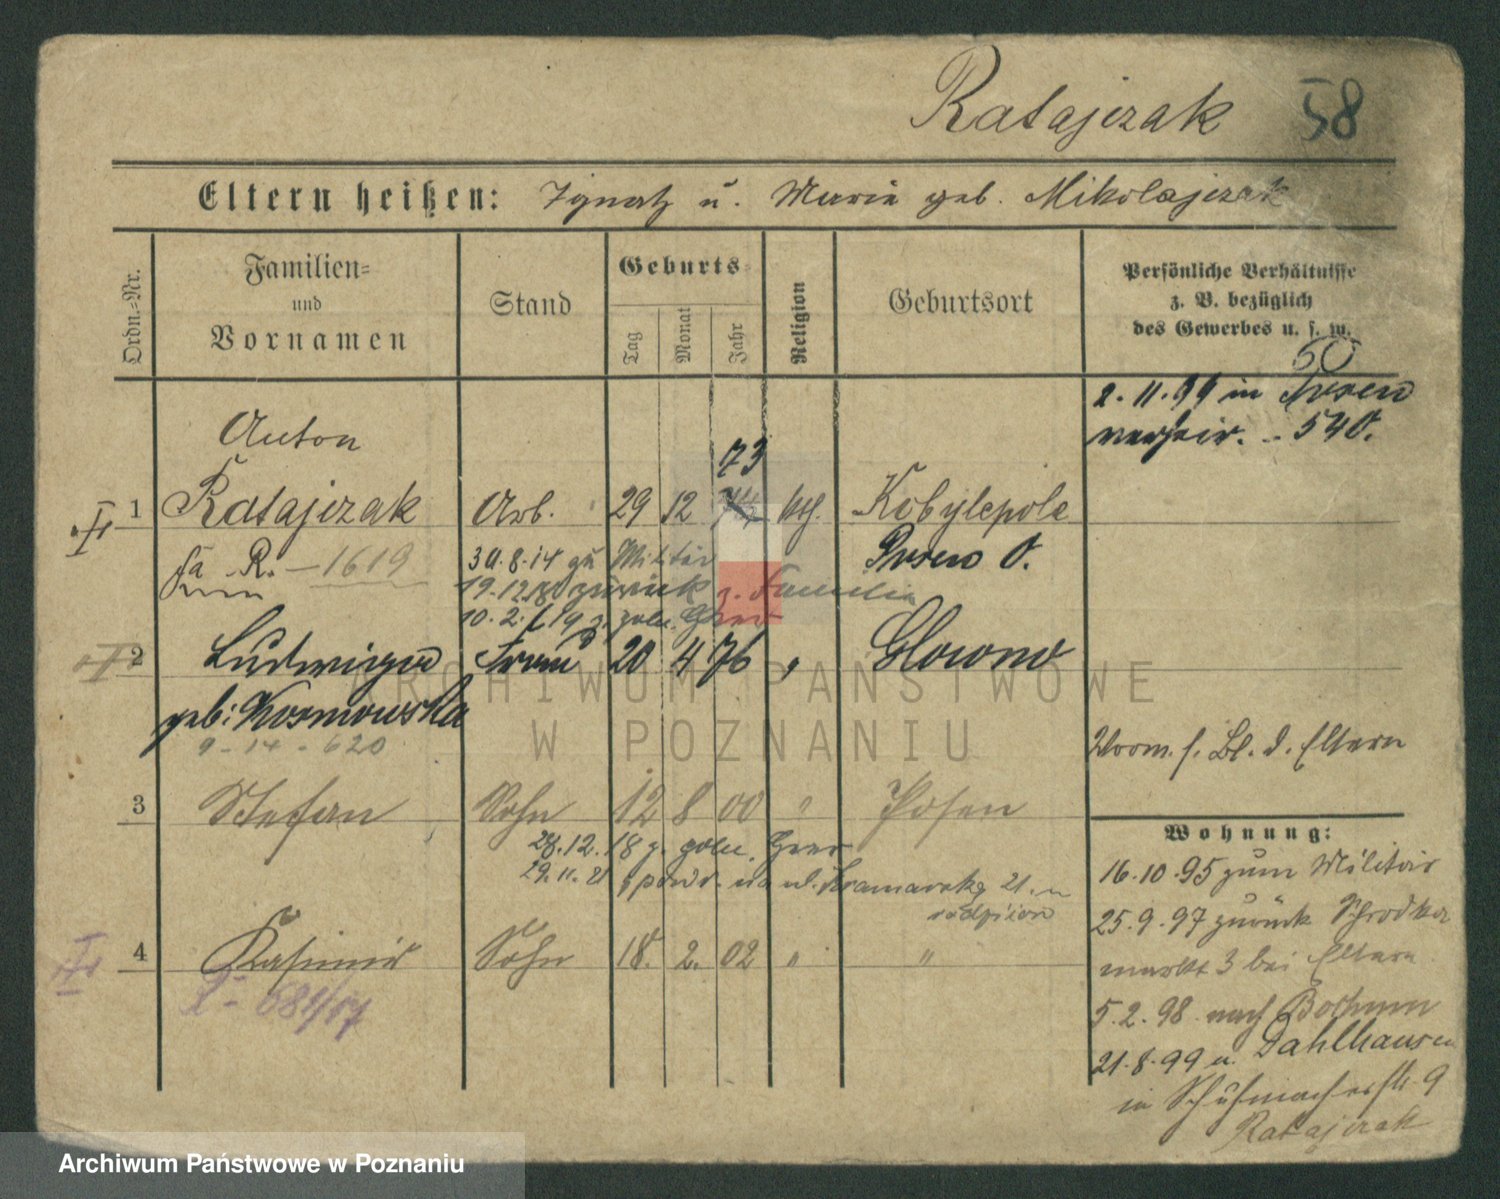 Ratajczak 58
Eltern heißen: Ignatz u. Marie geb. Mikolajczak
Ordn.-Nr.
Familien-
und
Vornamen
Stand
Geburts-
Tag
Monat
Jahr
Religion
Geburtsort
Persönliche Verhältnisse
z. B. bezüglich
des Gewerbes u. s. w.
50
2.11.99 in Posen
verheir. - 540.
Anton
73
1 Ratajczak Arb. 29 12 kth. Kobylepole
Posen O.
R. - 1619
30.8.14 zu Militär
19.12.18 zurück z. Familie
10.2.19 z. poln. Heer
2 Ludwiga Frau 20 4 76 " Glowno
geb: Kosmowska
9-14-620
Vorm. s. Bl. d. Eltern
3 Stefan Sohn 12 8 00 " Posen
28.12.18 z. poln. Heer
29.11.21 powr. na ul. Kramarską 21
4 Kasimir Sohn 18. 2. 02 " "
681/17
Wohnung:
16.10.95 zum Militär
25.9.97 zurück Schrodka
markt 3 bei Eltern
5.2.98 nach Bochum
21.8.99 u. Dahlhausen
in Schuhmacherstr. 9
Ratajczak
ARCHIWUM PAŃSTWOWE
W POZNANIU
Archiwum Państwowe w Poznaniu